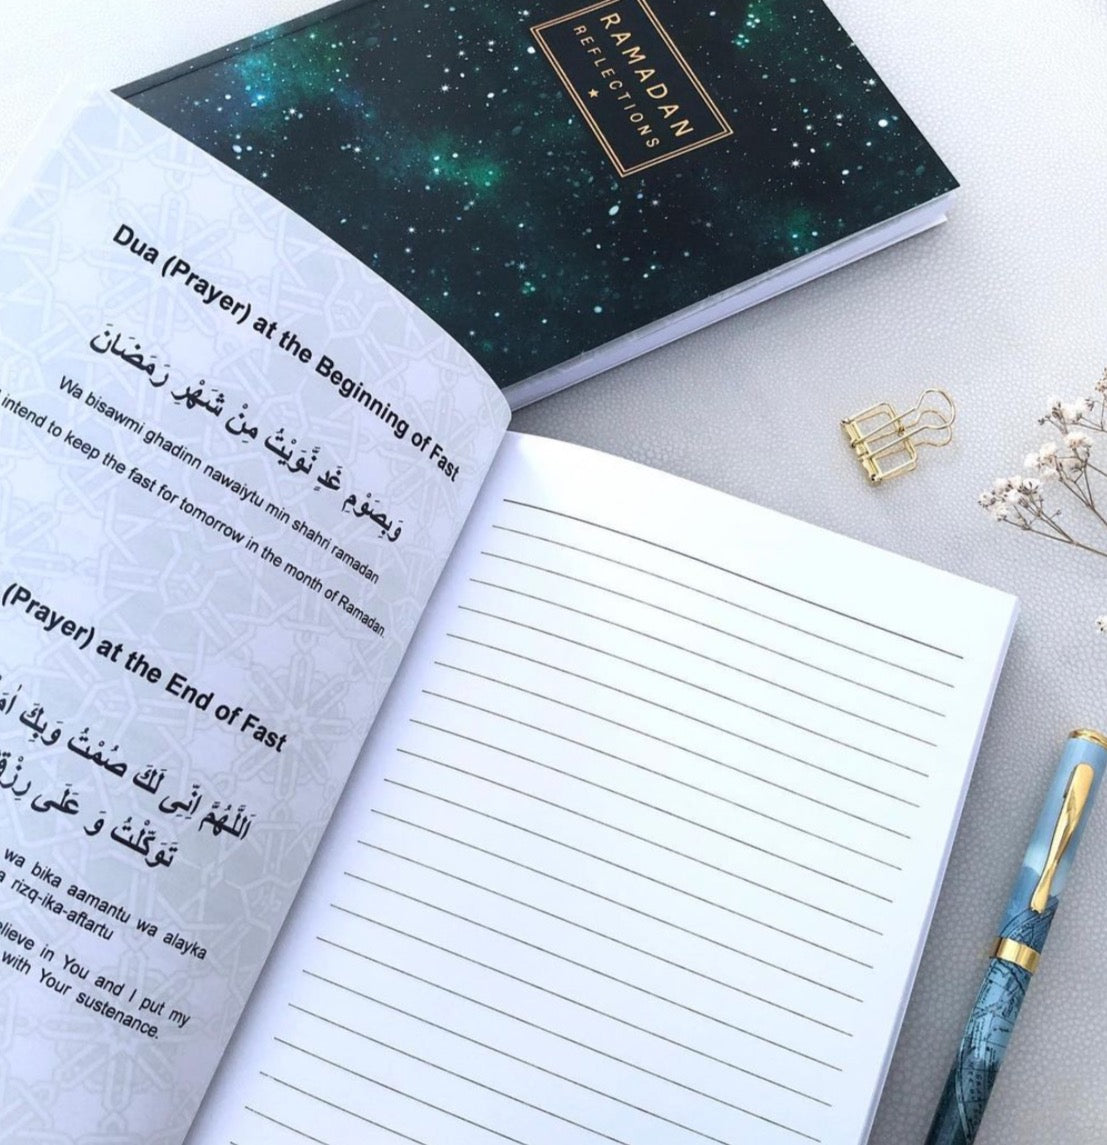 RAMADAN
REFLECTIONS
Dua (Prayer) at the Beginning of Fast
وَبِصَوْمِ غَدٍ نَّوَيْتُ مِنْ شَهْرِ رَمَضَانَ
Wa bisawmi ghadinn nawaiytu min shahri ramadan
intend to keep the fast for tomorrow in the month of Ramadan.
(Prayer) at the End of Fast
اَللّٰهُمَّ اِنِّى لَكَ صُمْتُ وَبِكَ
تَوَكَّلْتُ وَ عَلَى
wa bika aamantu wa alayka
rizq-ika-aftartu
in You and I put my
with Your sustenance.